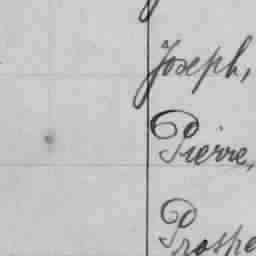 Joseph,
Pierre,
Prospe